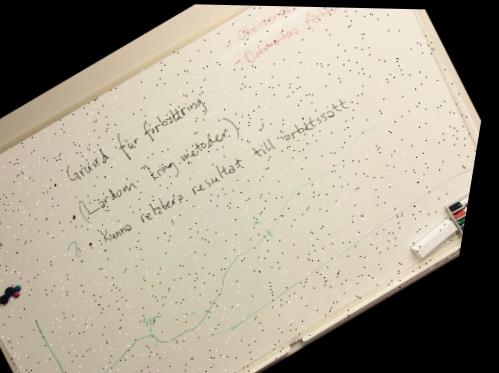 - Dokumentera
Grund för förbättring
(Lärdom kring metoder)
? • Kunna relatera resultat till arbetssätt